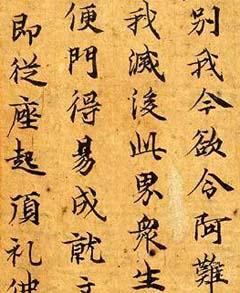 別我今欲令阿難
我滅後此界衆生
便門得易成就
即從座起頂礼